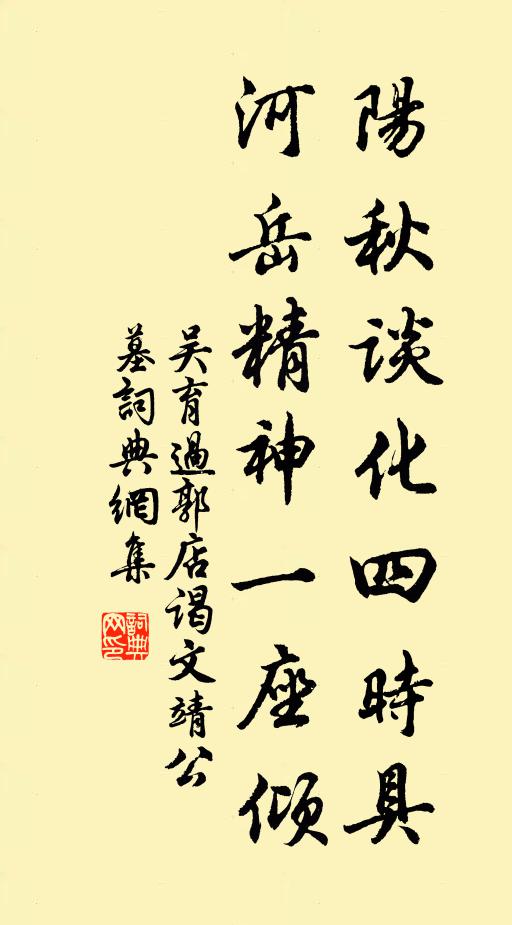 陽秋談化四時具
河岳精神一座傾
吴育過郭店謁文靖公
墓詞典網集
詞典
网印